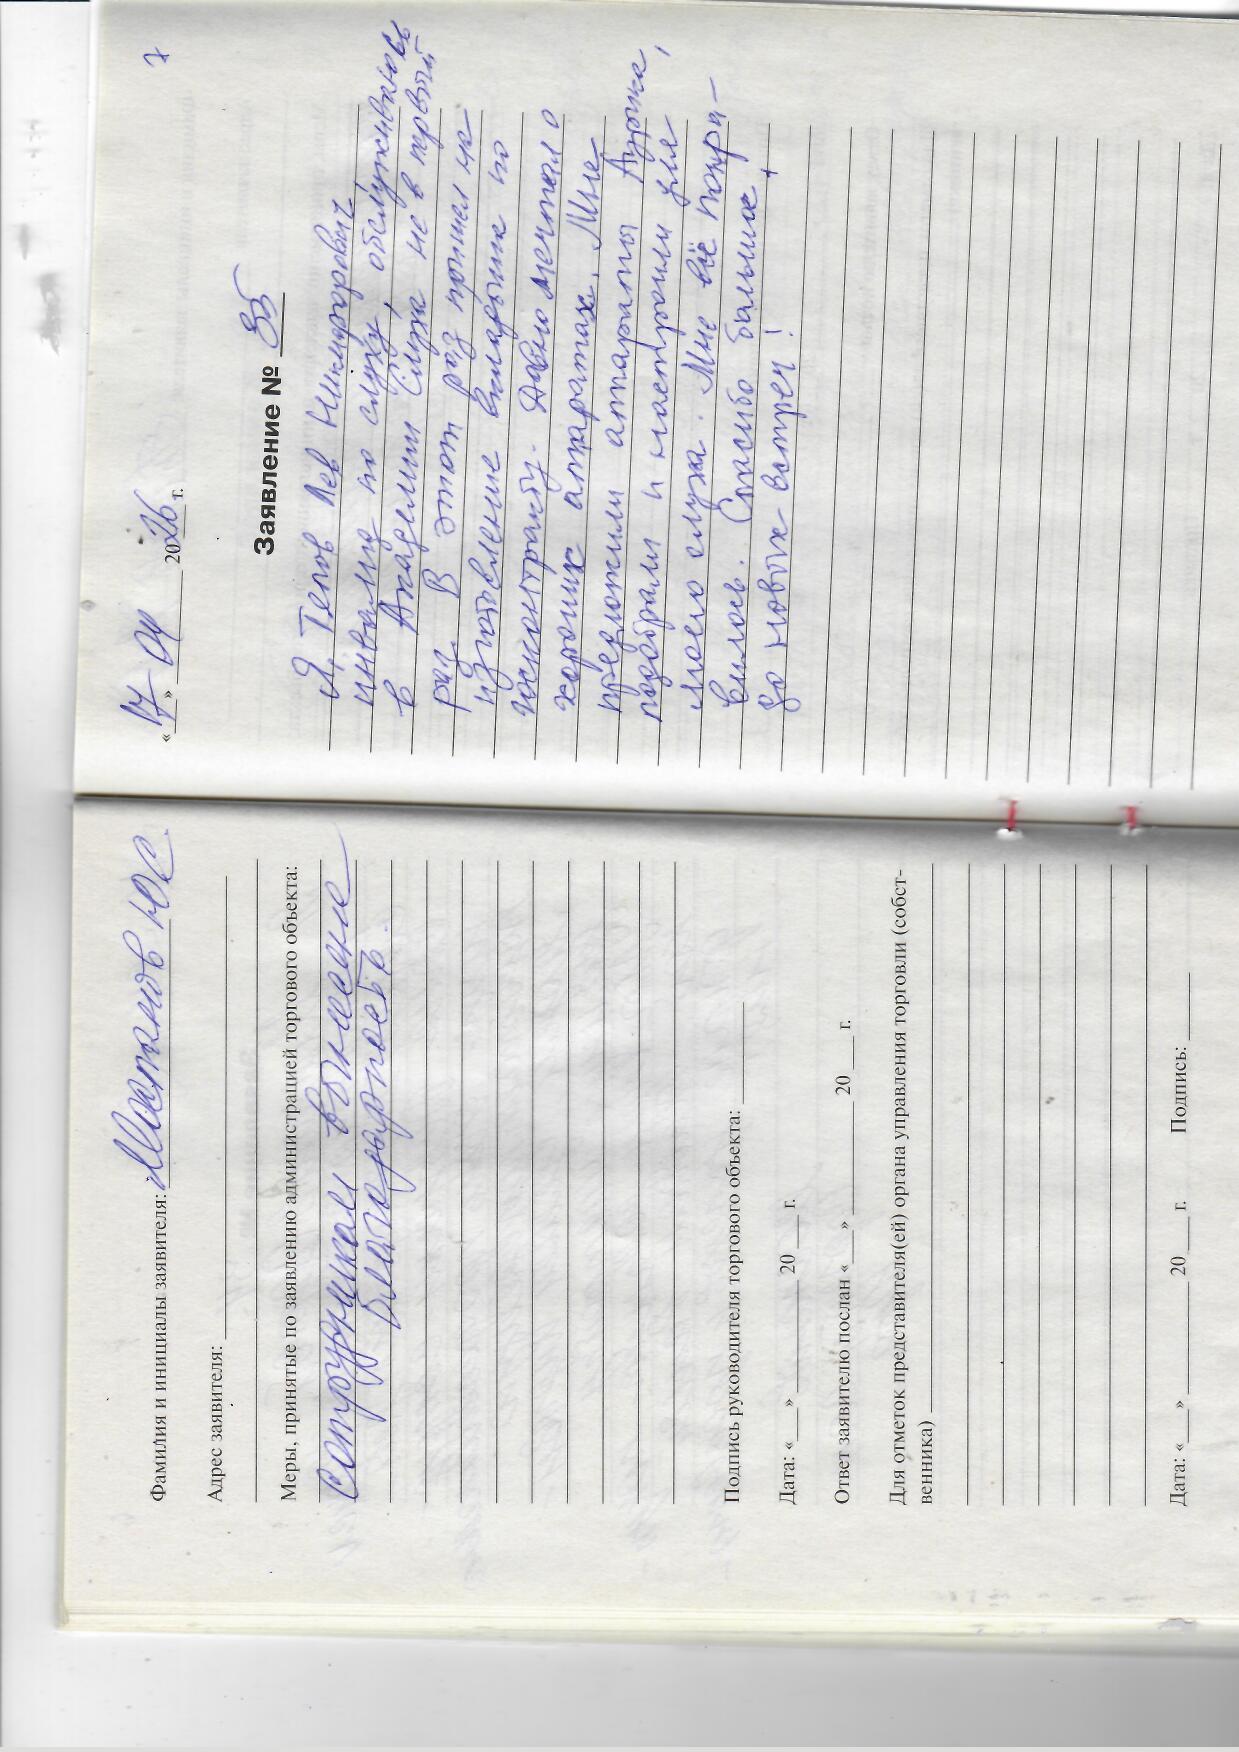 Фамилия и инициалы заявителя: ЮС
Адрес заявителя:
Меры, принятые по заявлению администрацией торгового объекта:
Сотрудникам вынесена
благодарность.
Подпись руководителя торгового объекта:
Дата: «___» ___ 20 ___ г.
Ответ заявителю послан «___» ___ 20 ___ г.
Для отметок представителя(ей) органа управления торговли (собст-
венника)
Дата: «___» ___ 20 ___ г. Подпись:
7
«17» 04 2026 г.
Заявление № 35
Я, Лев Никифорович
инвалид по слуху, обслуживаюсь
в Академии Слуха не в первый
раз. В этот раз пришел на
изготовление вкладыша по
госконтракту. Давно мечтал о
хороших аппаратах. Мне
предложили аппараты Аурика,
подобрали и настроили для
моего слуха. Мне всё понра-
вилось. Спасибо большое!
До новых встреч!